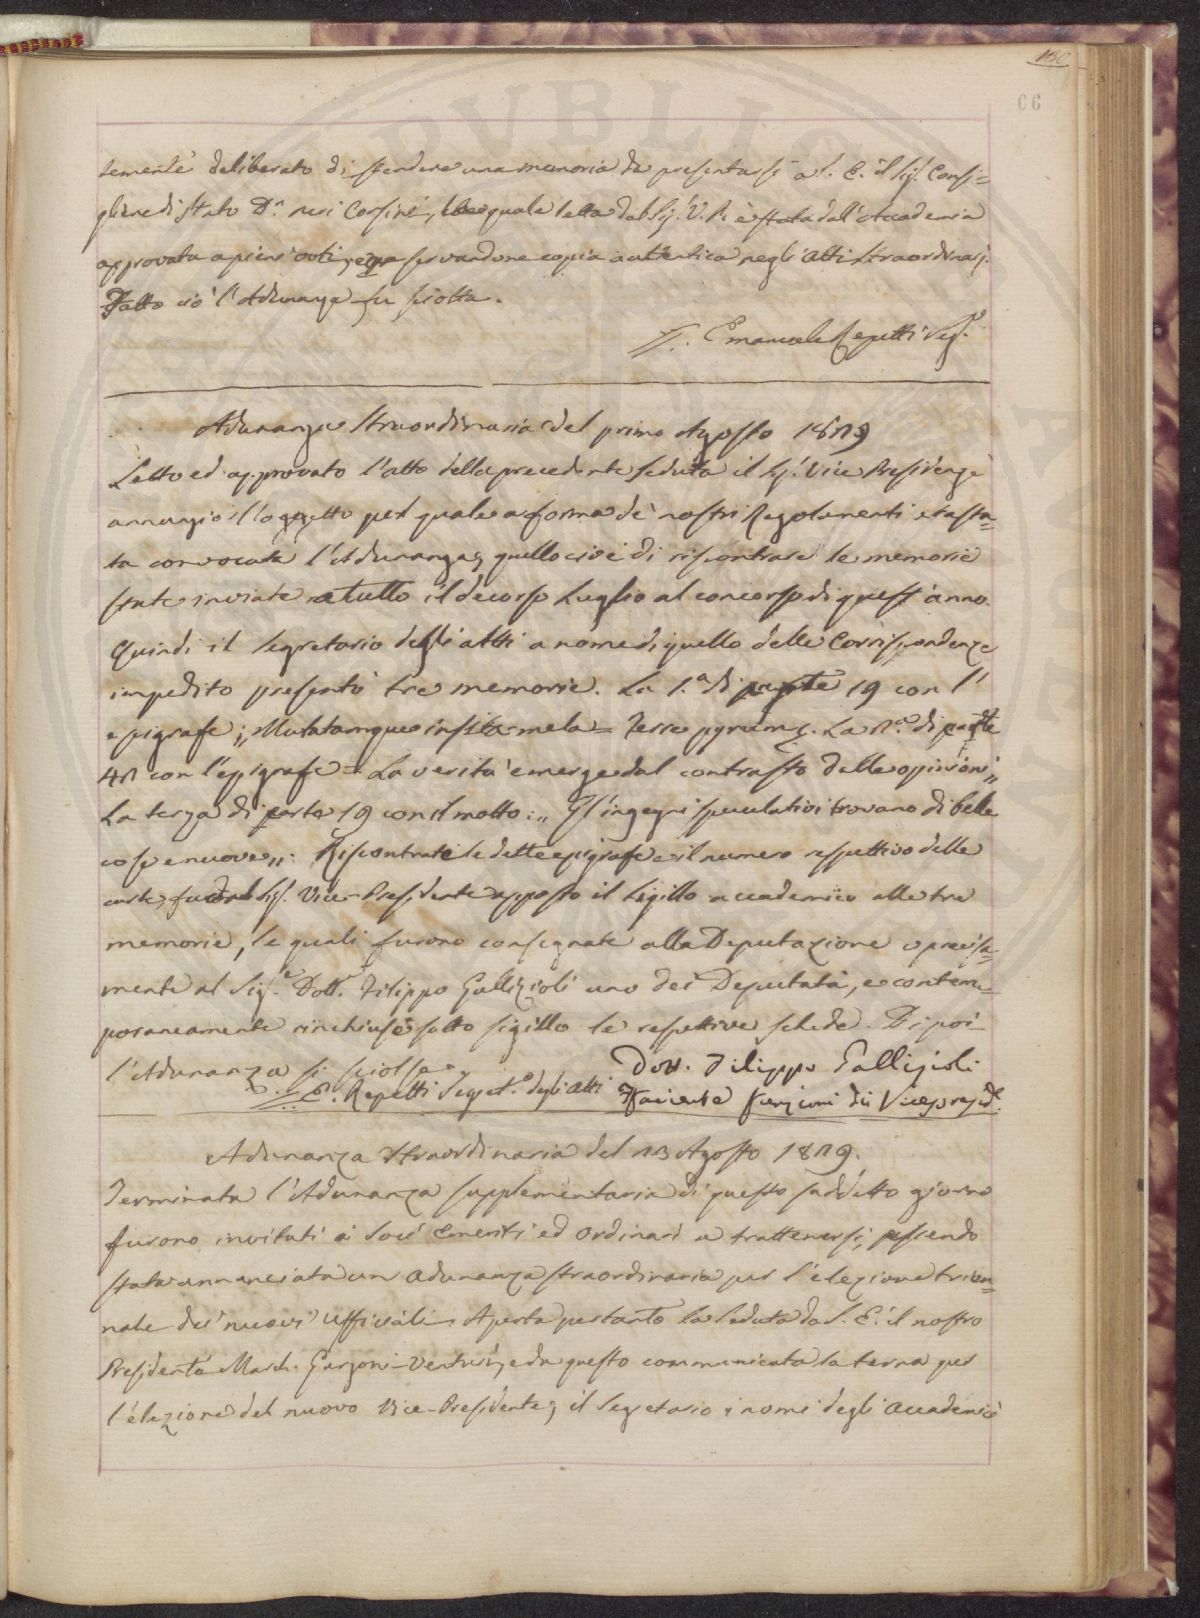 150
66
temente deliberato di stendere una memoria da presentarsi a S. E. il Sig. Consi=
gliere di Stato D.n Neri Corsini, la quale letta dal Sig. V. P. è stata dall'Accademia
approvata a pieni voti, conservandone copia autentica negli Atti Straordinarj.
Fatto ciò l'Adunanza fu sciolta.
Emanuele Repetti Seg.o
Adunanza Straordinaria del primo Agosto 1829
Letto ed approvato l'atto della precedente seduta il Sig. Vice Presidente
annunziò l'oggetto pel quale a forma de' nostri Regolamenti era sta=
ta convocata l'Adunanza, quello cioè di riscontrare le memorie
state inviate a tutto il decorso Luglio al concorso di quest'anno.
Quindi il Segretario degli atti a nome di quello delle Corrispondenze
impedito presentò tre memorie. La 1.a di carte 19 con l'
epigrafe „ Mutatamque insita mela = Ferre pyrum „. La 2.a di carte
42 con l'epigrafe = La verità emerge dal contrasto delle opinioni „
La terza di carte 19 con il motto: „ Gl'ingegni speculativi trovano di belle
cose e nuove „: Riscontrate le dette epigrafe e il numero respettivo delle
carte, fu dal Sig. Vice-Presidente apposto il Sigillo accademico alle tre
memorie, le quali furono consegnate alla Deputazione e precisa=
mente al Sig.e Dott.e Filippo Gallizioli uno dei Deputati, e contem=
poraneamente rinchiuse sotto sigillo le respettive schede. Di poi
l'Adunanza si sciolse.
E. Repetti Seget.o degli Atti
Dott. Filippo Gallizioli
Facente funzioni di Vicepresid.e
Adunanza Straordinaria del 23 Agosto 1829.
Terminata l'Adunanza supplementaria di questo suddetto giorno
furono invitati i Socj Emeriti ed Ordinarj a trattenersi, essendo
stata annunciata un Adunanza straordinaria per l'elezione trien=
nale dei nuovi Ufficiali. Aperta pertanto la Seduta da S. E. il nostro
Presidente March. Garzoni-Venturi, e da questo communicata la terna per
l'elezione del nuovo Vice-Presidente, il Segretario i nomi degli Accademici